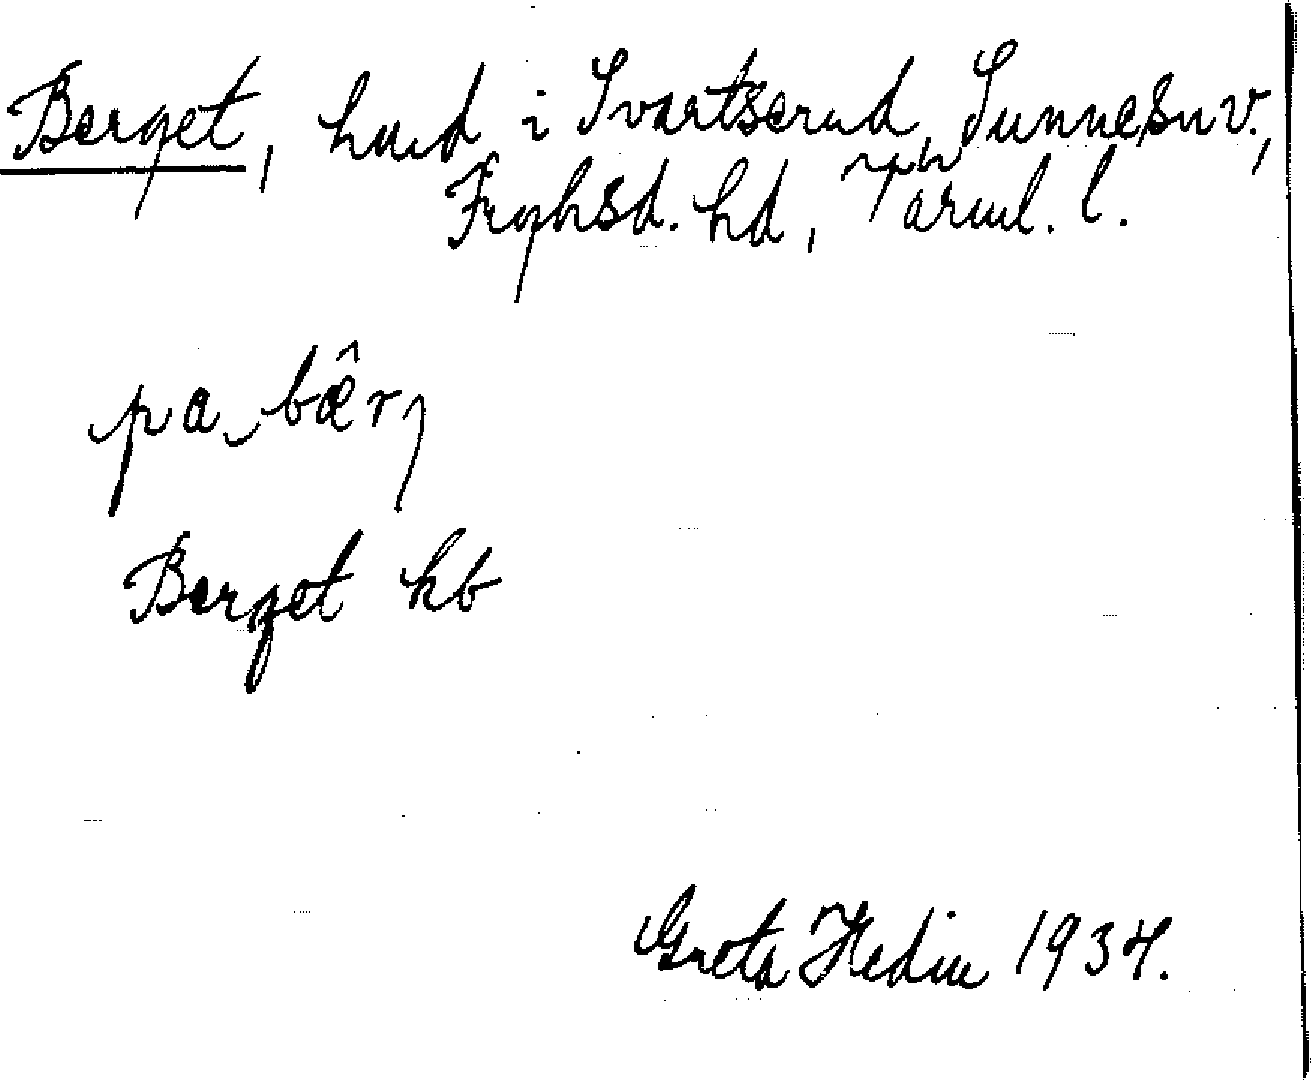 Berget, hmd i Svartserud, Sunne sn v.,
Fryksd. hd, Värml. l.
pa bæ̂rj
Berget kb
Greta Hedin 1934.